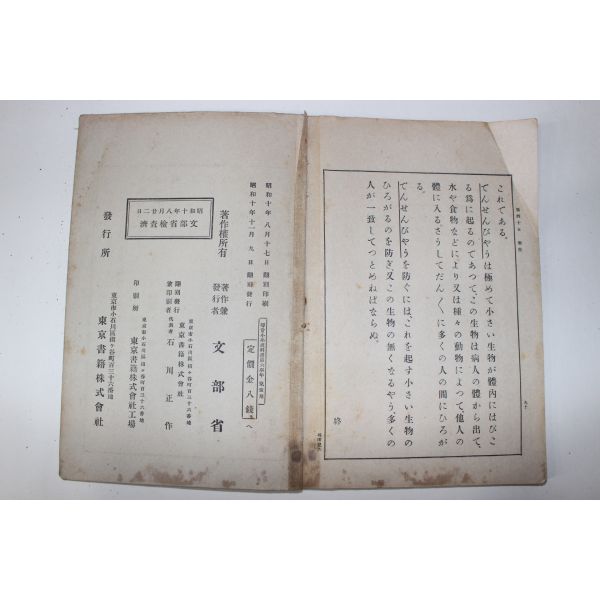 これである。
でんせんびやうは極めて小さい生物が體内にはびこ
る爲に起るのであつて、この生物は病人の體から出て、
水や食物などにより又は種々の動物によつて他人の
體に入るさうしてだん〱に多くの人の間にひろが
る。
でんせんびやうを防ぐには、これを起す小さい生物の
ひろがるのを防ぎ、又この生物の無くなるやう、多くの
人が一致してつとめねばならぬ。
終
昭和十年八月十七日翻刻印刷
昭和十年十一月九日翻刻發行
定價金八錢
著作權所有
著作兼
發行者
文部省
東京市小石川區
翻刻發行
兼印刷者
東京書籍株式會社
代表者
石川正作
印刷所
東京書籍株式會社工場
昭和十年八月廿二日
文部省檢査濟
發行所
東京市小石川區
東京書籍株式會社